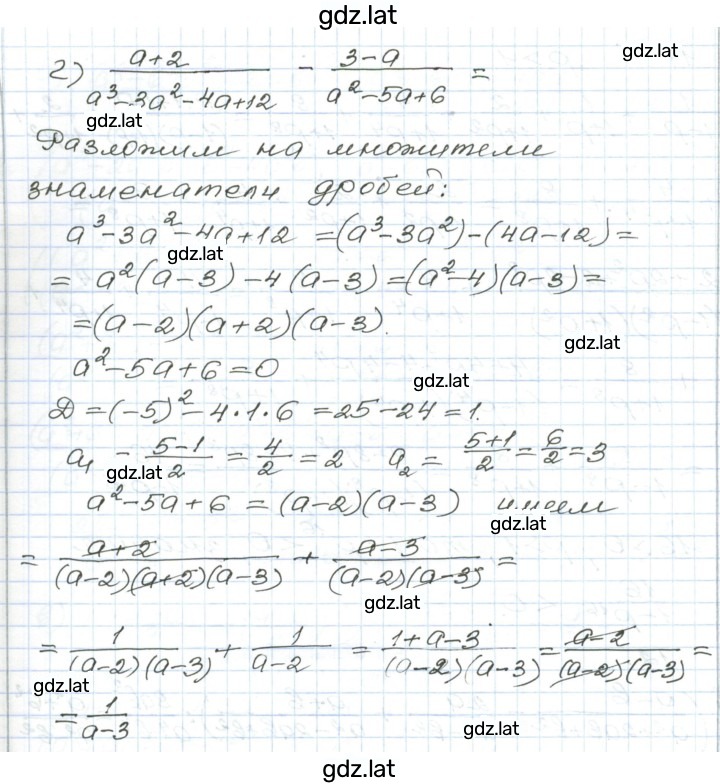 gdz.lat
gdz.lat
2) (a+2)/(a³-3a²-4a+12) - (3-a)/(a²-5a+6) =
gdz.lat
Разложим на множители
знаменатели дробей:
a³-3a²-4a+12 =(a³-3a²)-(4a-12)=
gdz.lat
= a²(a-3)-4(a-3)=(a²-4)(a-3)=
=(a-2)(a+2)(a-3).
gdz.lat
a²-5a+6=0
gdz.lat
Д=(-5)²-4·1·6 =25-24=1.
a₁ - (5-1)/2 = 4/2 = 2 a₂ = (5+1)/2 = 6/2 = 3
gdz.lat
a²-5a+6 = (a-2)(a-3) имеем
gdz.lat
= (a+2)/((a-2)(a+2)(a-3)) + (a-3)/((a-2)(a-3)) =
gdz.lat
= 1/((a-2)(a-3)) + 1/(a-2) = (1+a-3)/((a-2)(a-3)) = (a-2)/((a-2)(a-3)) =
gdz.lat
= 1/(a-3)
gdz.lat
gdz.lat